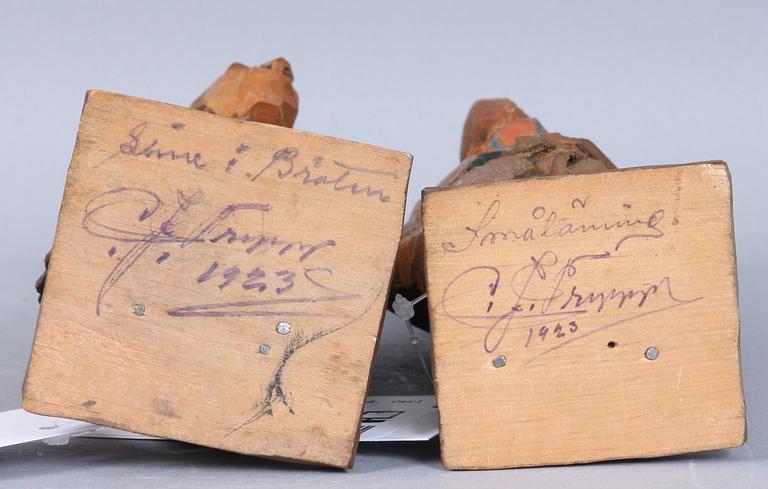 i Bråten
C. J. Trygg
1923
Smålänning
C. J. Trygg
1923